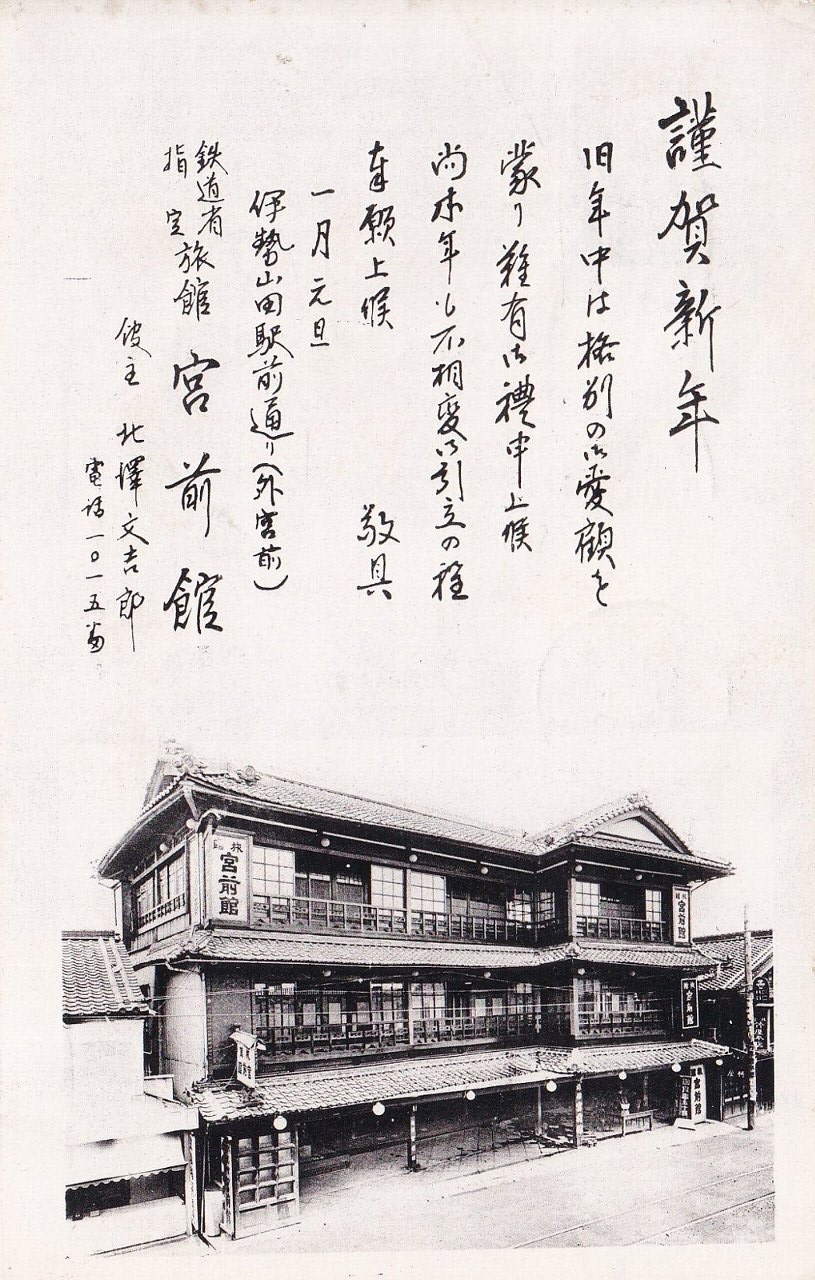 謹賀新年
旧年中は格別の御愛顧を
蒙り難有御禮申上候
尚本年も不相変御引立の程
奉願上候 敬具
一月元旦
伊勢山田駅前通り(外宮前)
鉄道省
指定旅館 宮前館
館主 北澤文吉郎
電話一〇一五番
旅館
宮前館
旅館
宮前館
宮前館
宮前館